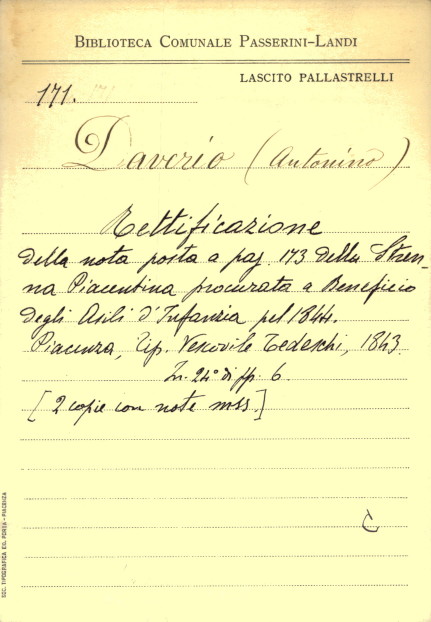 BIBLIOTECA COMUNALE PASSERINI-LANDI
LASCITO PALLASTRELLI
171. 171
Daverio (Antonino)
Rettificazione
della nota posta a pag. 173 della Stren-
na Piacentina procurata a Beneficio
degli Asili d'Infanzia pel 1844.
Piacenza, Tip. Vescovile Tedeschi, 1843.
In 24° di pp. 6.
[2 copie con note mss.]
C
SOC. TIPOGRAFICA ED. PORTA - PIACENZA